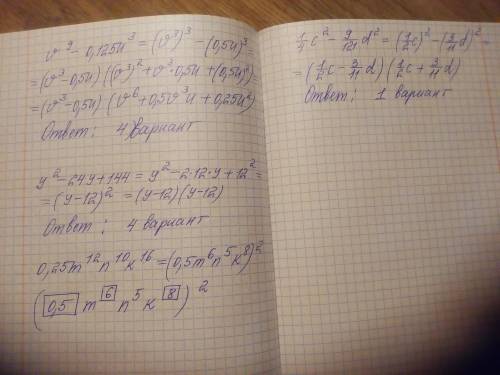 v⁹ - 0,125u³ = (v³)³ - (0,5u)³ =
= (v³ - 0,5u) ((v³)² + v³·0,5u + (0,5u)²) =
= (v³ - 0,5u) (v⁶ + 0,5v³u + 0,25u²)
Ответ: 4) вариант
y² - 24y + 144 = y² - 2·12·y + 12² =
= (y-12)² = (y-12)(y-12)
Ответ: 4 вариант
0,25m¹²n¹⁰k¹⁶ = (0,5m⁶n⁵k⁸)²
(0,5 m⁶ n⁵ k⁸)²
1/4 c² - 9/121 d² = (1/2 c)² - (3/11 d)² =
= (1/2 c - 3/11 d) (1/2 c + 3/11 d)
Ответ: 1 вариант